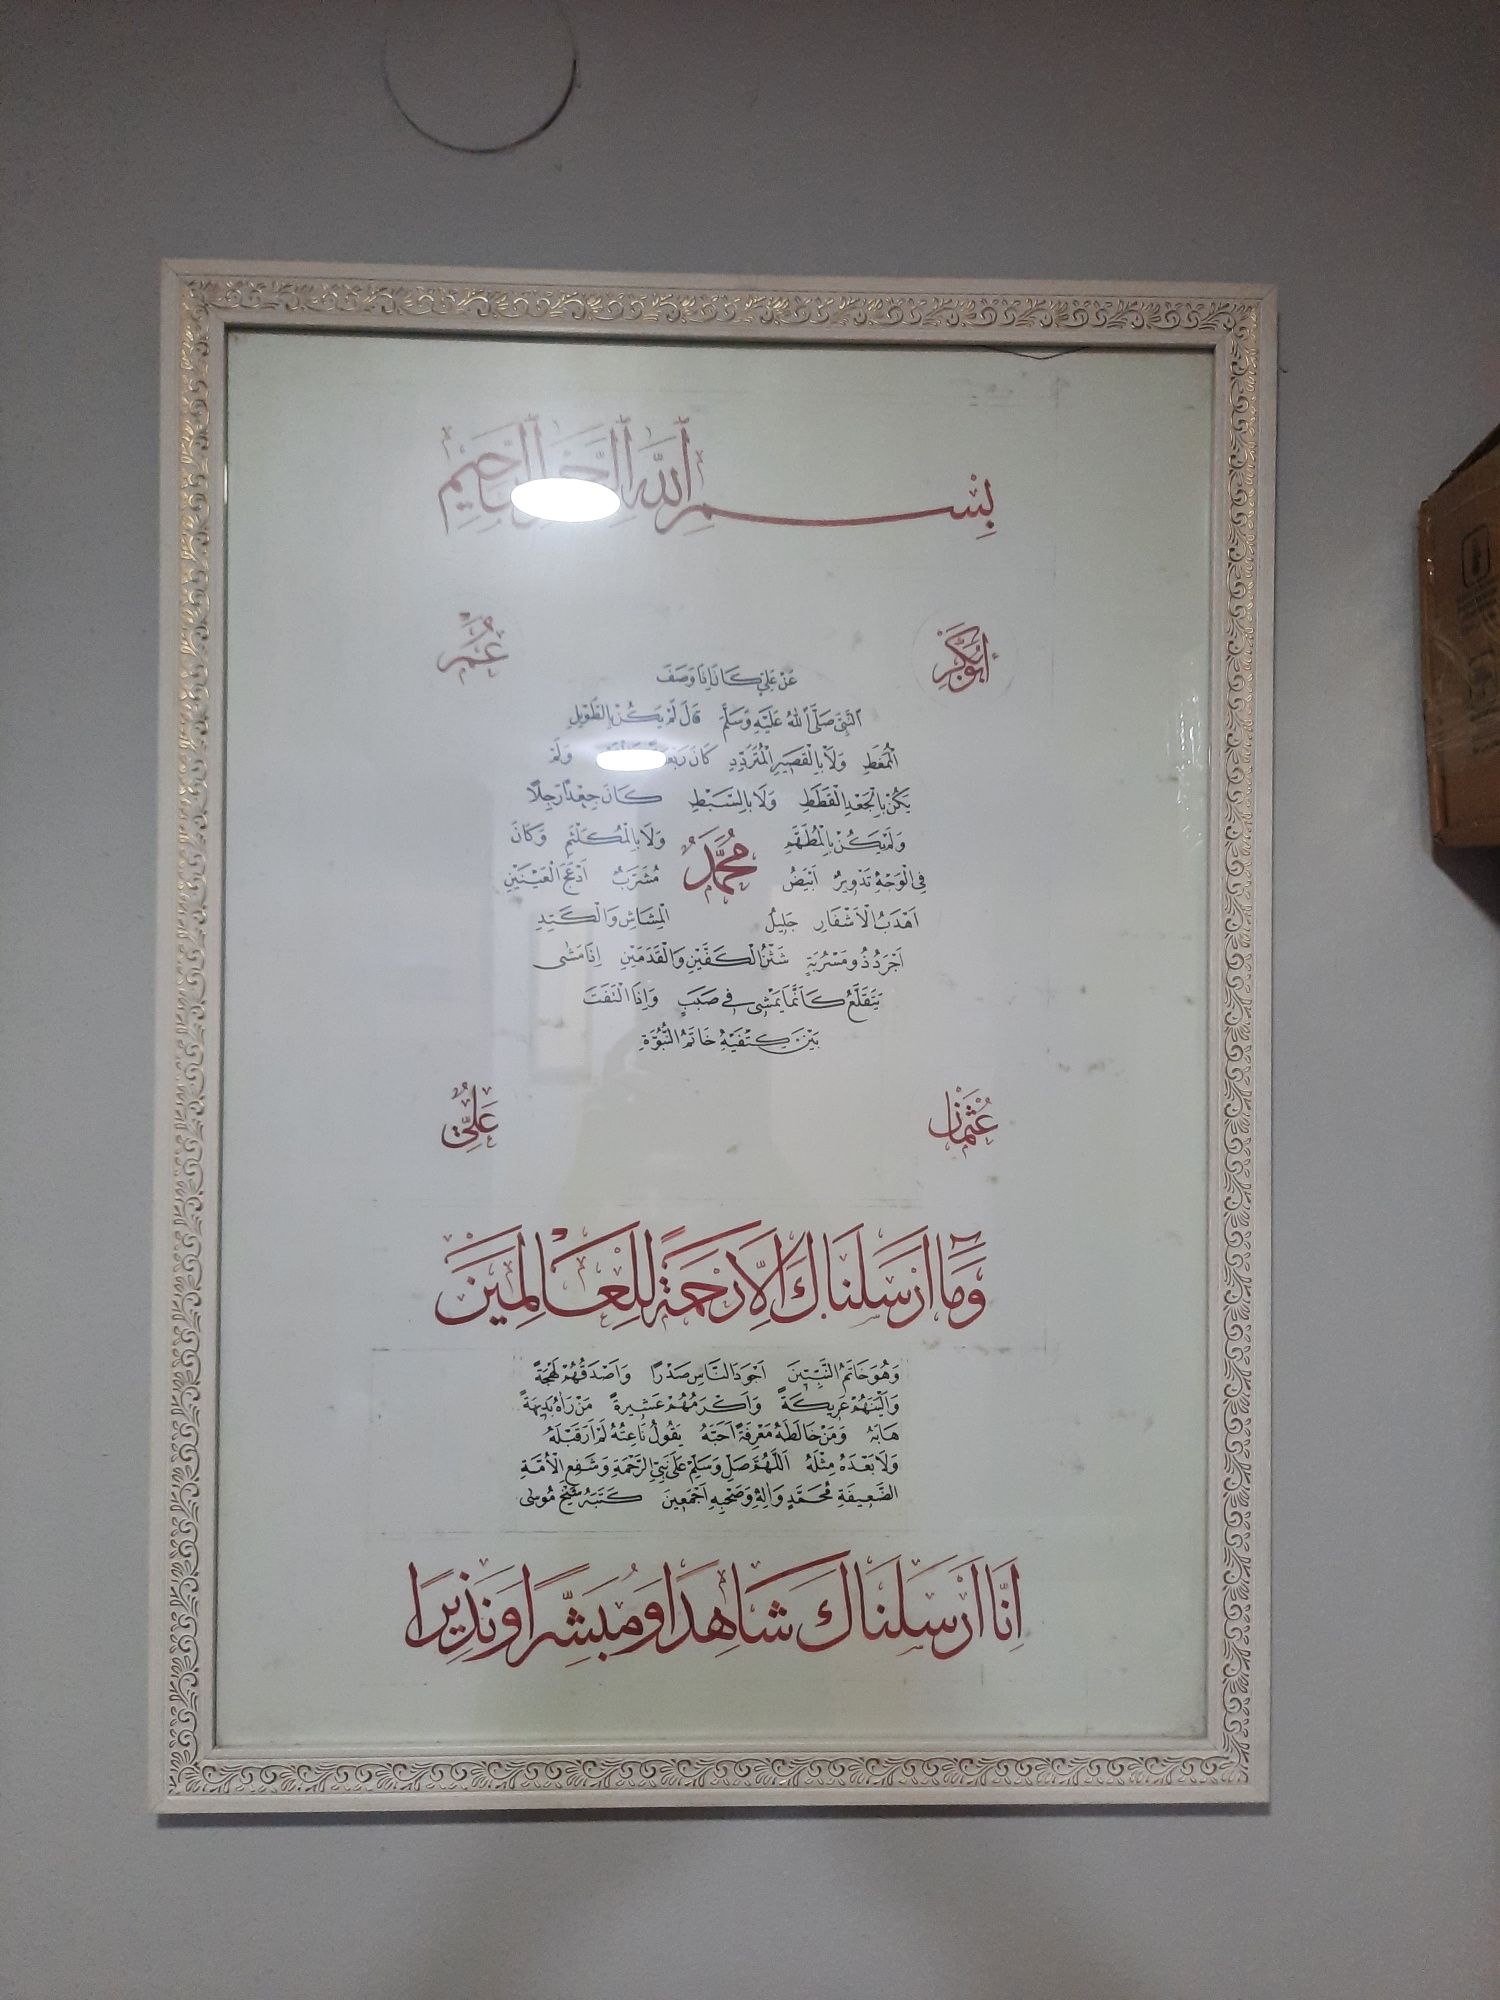 بِسْمِ اللهِ الرَّحْمٰنِ الرَّحِيْمِ
أَبُوبَكْرٍ عُمَرْ
عَنْ عَلِيٍّ كَانَ إِذَا وَصَفَ
النَّبِيَّ صَلَّى اللهُ عَلَيْهِ وَسَلَّمَ قَالَ لَمْ يَكُنْ بِالطَّوِيلِ
الْمُمَغَّطِ وَلَا بِالْقَصِيرِ الْمُتَرَدِّدِ كَانَ رَبْعَةً وَلَمْ
يَكُنْ بِالْجَعْدِ الْقَطَطِ وَلَا بِالسَّبْطِ كَانَ جَعْدًا رَجِلًا
وَلَمْ يَكُنْ بِالْمُطَهَّمِ وَلَا بِالْمُكَلْثَمِ وَكَانَ
مُحَمَّدٌ
فِي الْوَجْهِ تَدْوِيرٌ اَبْيَضُ مُشْرَبٌ اَدْعَجُ الْعَيْنَيْنِ
اَهْدَبُ الْاَشْفَارِ جَلِيلُ الْمُشَاشِ وَالْكَتَدِ
اَجْرَدُ ذُو مَسْرُبَةٍ شَثْنُ الْكَفَّيْنِ وَالْقَدَمَيْنِ اِذَا مَشٰى
يَتَقَلَّعُ كَاَنَّمَا يَمْشِي فِي صَبَبٍ وَاِذَا الْتَفَتَ
بَيْنَ كِتْفَيْهِ خَاتَمُ النُّبُوَّةِ
عُثْمَانْ عَلِيٌّ
وَمَا اَرْسَلْنَاكَ اِلَّا رَحْمَةً لِلْعَالَمِينَ
وَهُوَ خَاتَمُ النَّبِيّٖنَ اَجْوَدُ النَّاسِ صَدْرًا وَاَصْدَقُهُمْ لَهْجَةً
وَاَلْيَنُهُمْ عَرِيكَةً وَاَكْرَمُهُمْ عَشِيرَةً مَنْ رَاٰهُ بَدِيهَةً
هَابَهُ وَمَنْ خَالَطَهُ مَعْرِفَةً اَحَبَّهُ يَقُولُ نَاعِتُهُ لَمْ اَرَ قَبْلَهُ
وَلَا بَعْدَهُ مِثْلَهُ اَللّٰهُمَّ صَلِّ وَسَلِّمْ عَلٰى نَبِيِّ الرَّحْمَةِ وَشَفِيعِ الْاُمَّةِ
الضَّعِيفَةِ مُحَمَّدٍ وَاٰلِهٖ وَصَحْبِهٖ اَجْمَعِينَ كَتَبَهُ شَيْخ مُوسٰى
اِنَّا اَرْسَلْنَاكَ شَاهِدًا وَمُبَشِّرًا وَنَذِيرًا